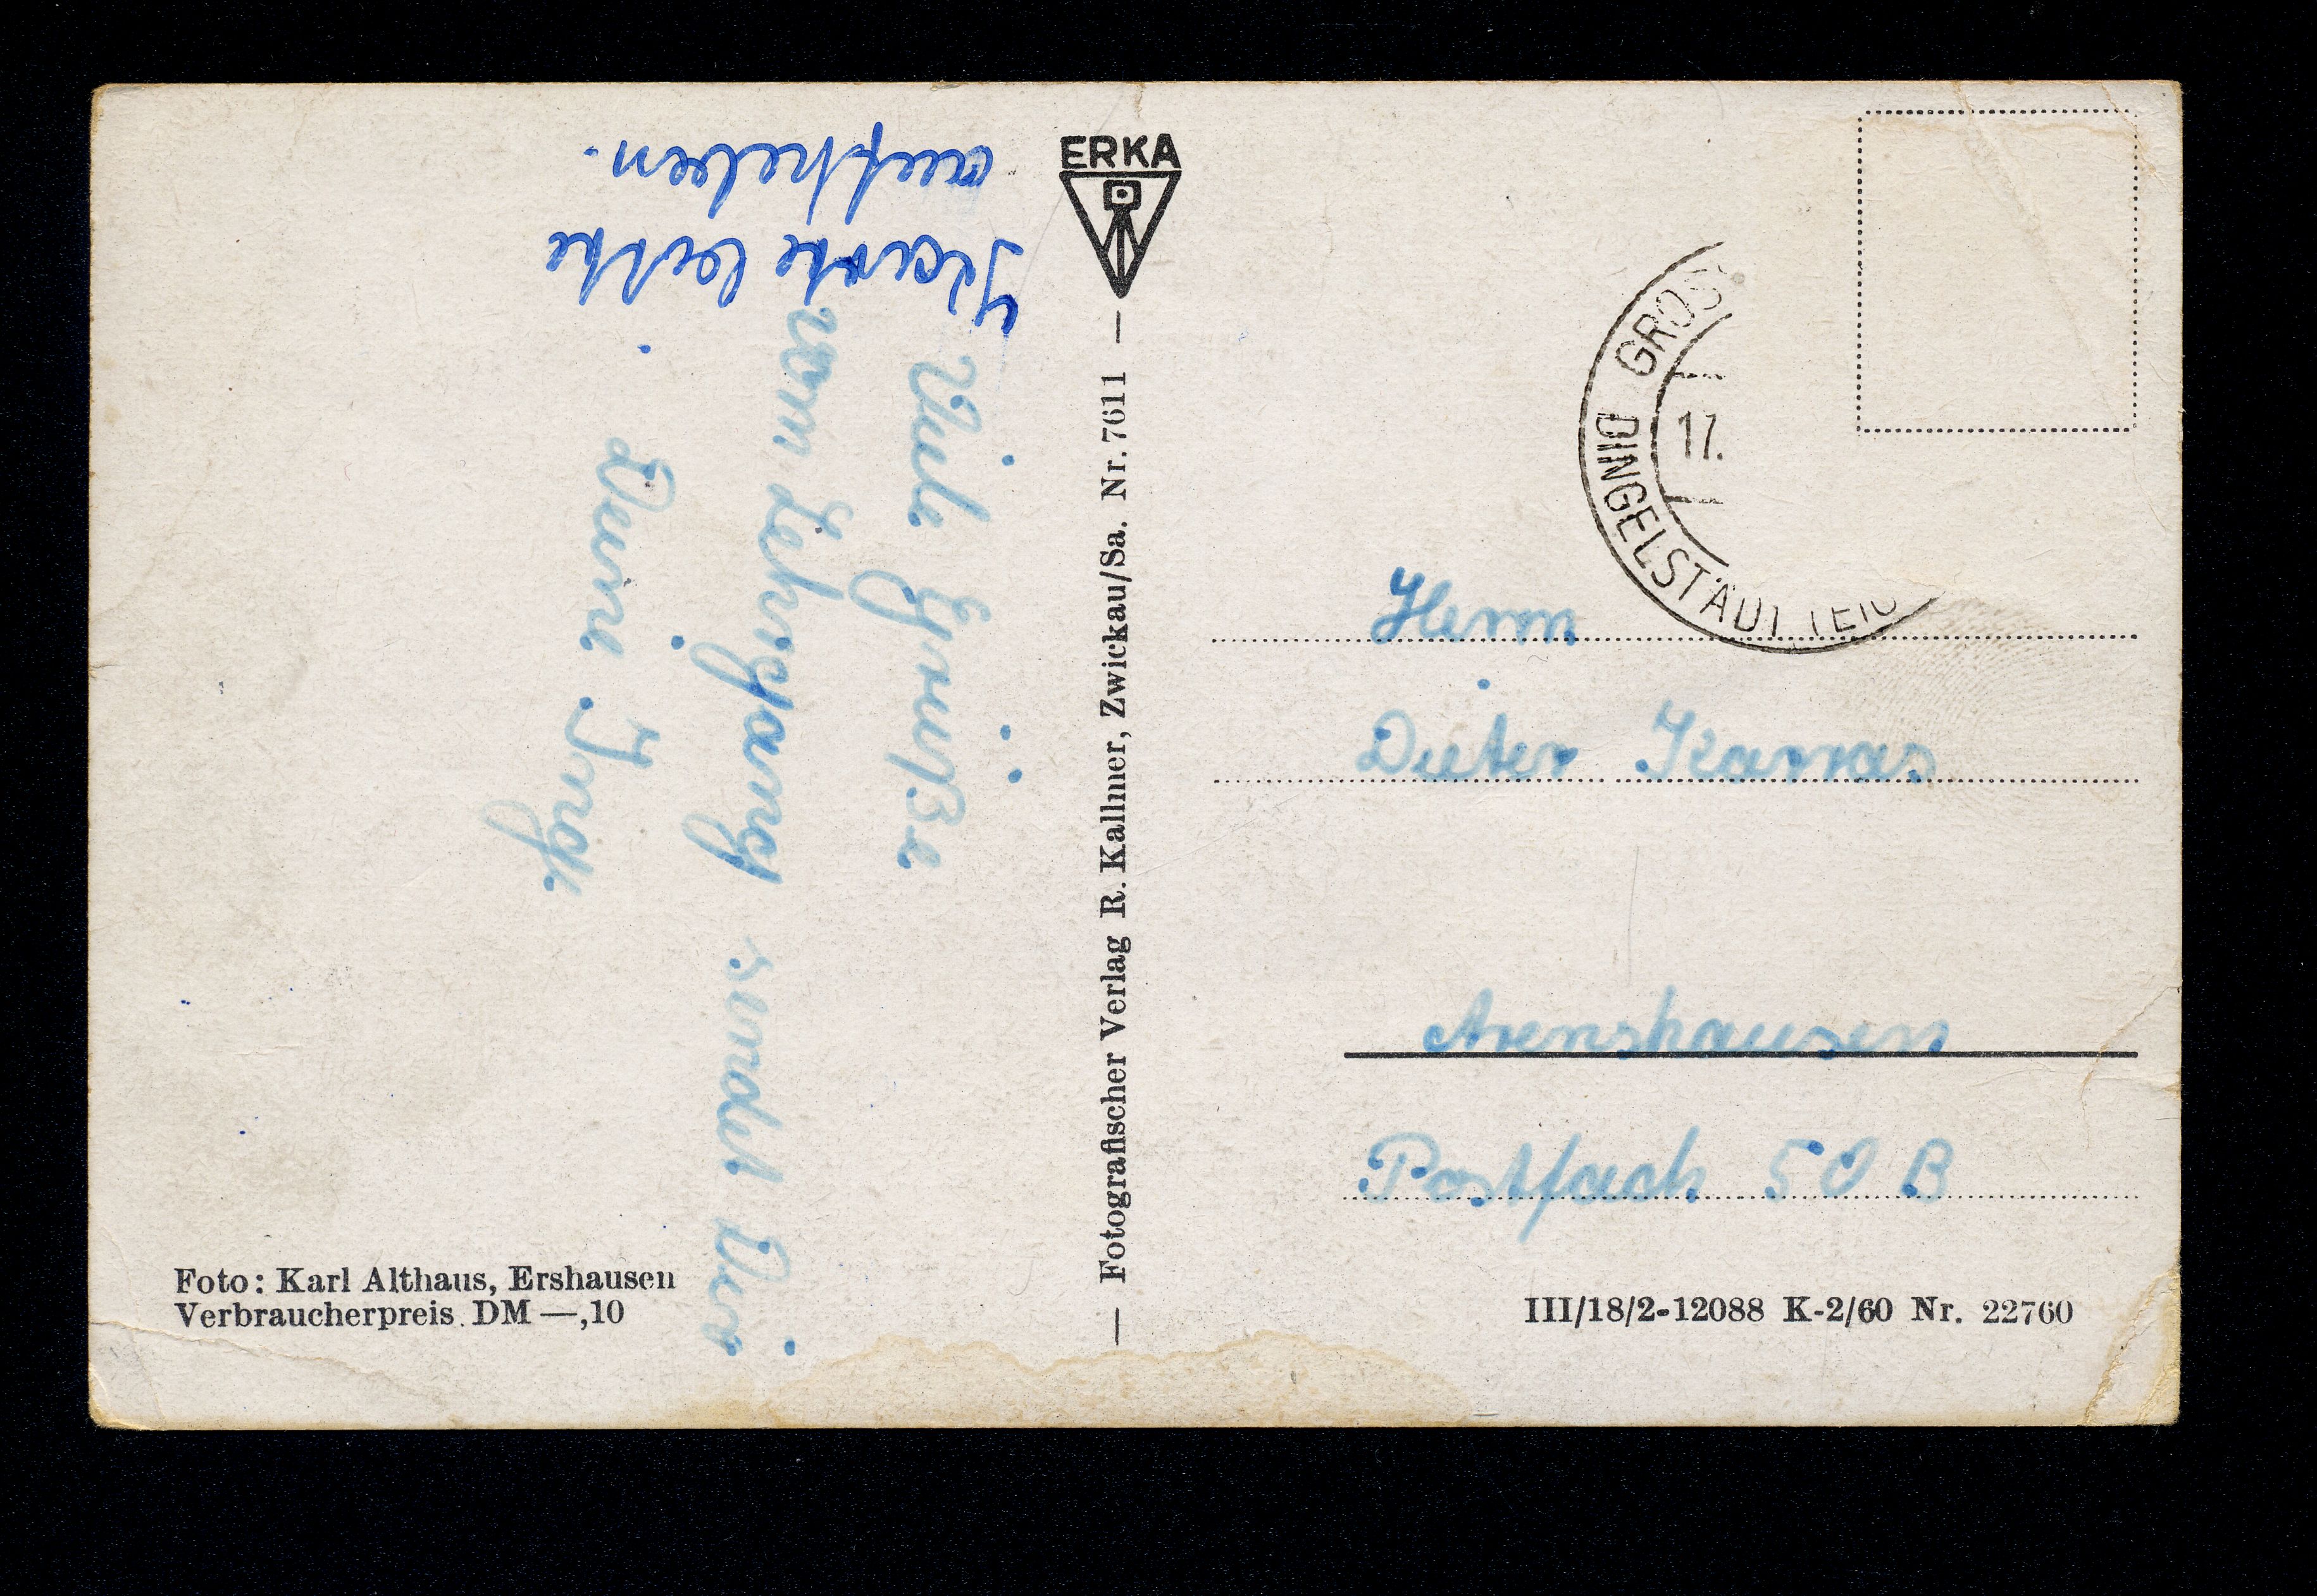 Karte bitte
aufheben.
Viele Grüße
vom Lehrgang sendet Dir
Deine Ingr.
ERKA
— Fotografischer Verlag R. Kallmer, Zwickau/Sa. Nr. 7611 —
GROS
DINGELSTÄDT (EIC
17.
Herrn
Dieter Karras
Arenshausen
Postfach 50 B
Foto: Karl Althaus, Ershausen
Verbraucherpreis DM —,10
III/18/2-12088 K-2/60 Nr. 22760